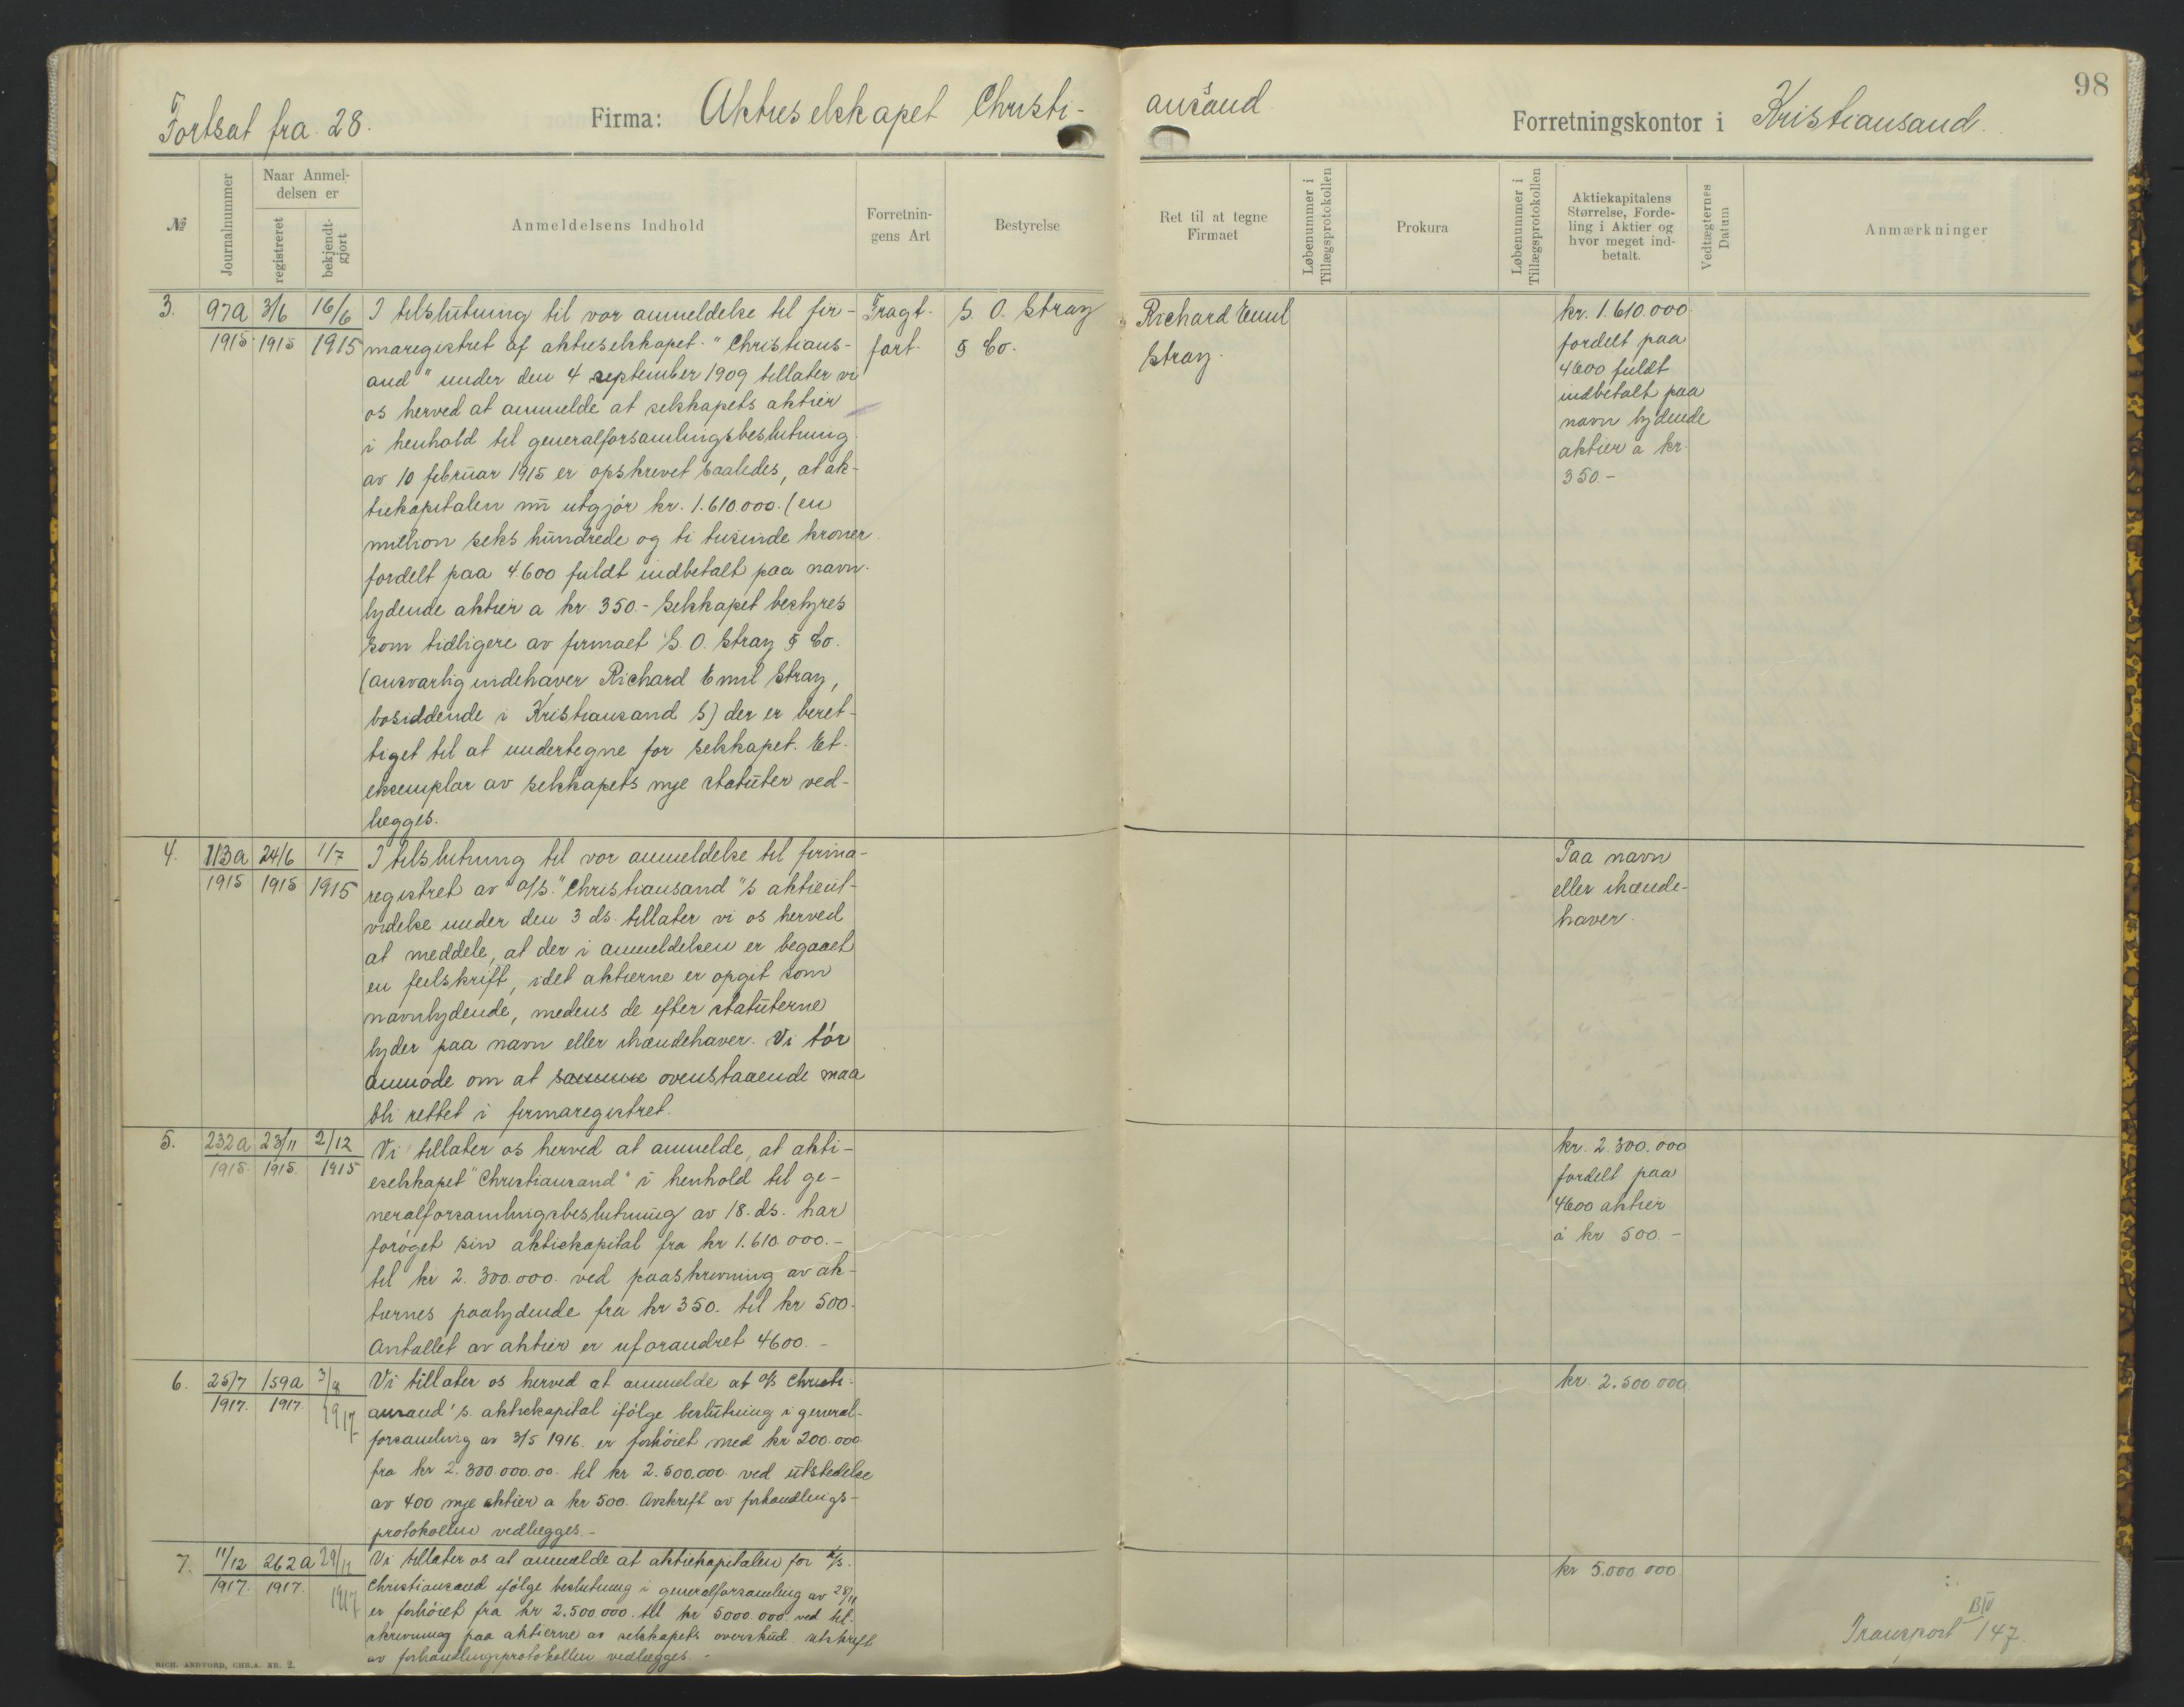 98
Fortsat fra 28.
Firma: Aktieselskapet Christi-
ansand
Forretningskontor i Kristiansand.
№
Journalnummer
Naar Anmel-
delsen er
registreret
bekjendt-
gjort
Anmeldelsens Indhold
Forretnin-
gens Art
Bestyrelse
Ret til at tegne
Firmaet
Løbenummer i
Tillægsprotokollen
Prokura
Løbenummer i
Tillægsprotokollen
Aktiekapitalens
Størrelse, Forde-
ling i Aktier og
hvor meget ind-
betalt.
Vedtægternes
Datum
Anmærkninger
3.
97a 3/6 16/6
1915 1915 1915
I tilslutning til vor anmeldelse til fir-
maregistret af aktieselskapet "Christians-
and" under den 4 september 1909 tillater vi
os herved at anmelde at selskapets aktier
i henhold til generalforsamlingsbeslutning
av 10 februar 1915 er opskrevet saaledes, at ak-
tiekapitalen nu utgjør kr. 1.610.000. (en
million seks hundrede og ti tusinde kroner
fordelt paa 4.600 fuldt indbetalt paa navn
lydende aktier a kr. 350.- Selskapet bestyres
som tidligere av firmaet S. O. Stray & Co.
(ansvarlig indehaver Richard Emil Stray,
bosiddende i Kristiansand S) der er beret-
tiget til at undertegne for selskapet. Et
eksemplar av selskapets nye statuter ved-
lægges.
Fragt-
fart.
S. O. Stray
& Co.
Richard Emil
Stray.
kr. 1.610.000
fordelt paa
4600 fuldt
indbetalt paa
navn lydende
aktier a kr.
350.-
4.
113a 24/6 1/7
1915 1915 1915
I tilslutning til vor anmeldelse til firma-
registret av "a/s." Christiansand"s aktieut-
videlse under den 3 ds. tillater vi os herved
at meddele, at der i anmeldelsen er begaaet
en feilskrift, idet aktierne er opgit som
navnlydende, medens de efter statuterne
lyder paa navn eller ihændehaver. Vi tør
anmode om at samme ovenstaaende maa
bli rettet i firmaregistret.
Paa navn
eller ihænde-
haver.
5.
232a 23/11 2/12
1915 1915. 1915
Vi tillater os herved at anmelde, at akti-
eselskapet "Christiansand" i henhold til ge-
neralforsamlingsbeslutning av 18. ds. har
forøget sin aktiekapital fra kr 1.610.000.-
til kr 2.300.000. ved paaskrivning av ak-
tiernes paalydende fra kr 350. til kr 500.
Antallet av aktier er uforandret 4600.-
kr. 2.300.000
fordelt paa
4600 aktier
á kr 500.-
6.
25/7 159a 3/8
1917. 1917. 1917
Vi tillater os herved at anmelde at a/s Christi-
ansand's aktiekapital ifølge beslutning i general-
forsamling av 3/5 1916. er forhøiet med kr 200.000
fra kr 2.300.000.00. til kr 2.500.000 ved utstedelse
av 400 nye aktier a kr 500. Avskrift av forhandlings-
protokollen vedlægges.-
kr. 2.500.000
7.
11/12 262a 29/12
1917. 1917. 1917
Vi tillater os at anmelde at aktiekapitalen for a/s.
Christiansand ifølge beslutning i generalforsamling av 28/11
er forhøiet fra kr 2.500.000. til kr 5000.000. ved til-
skrivning paa aktierne av selskapets overskud. Utskrift
av forhandlingsprotokollen vedlægges.-
kr 5.000.000
Transport 147.
RICH. ANDVORD, CHR.A. NR. 2.